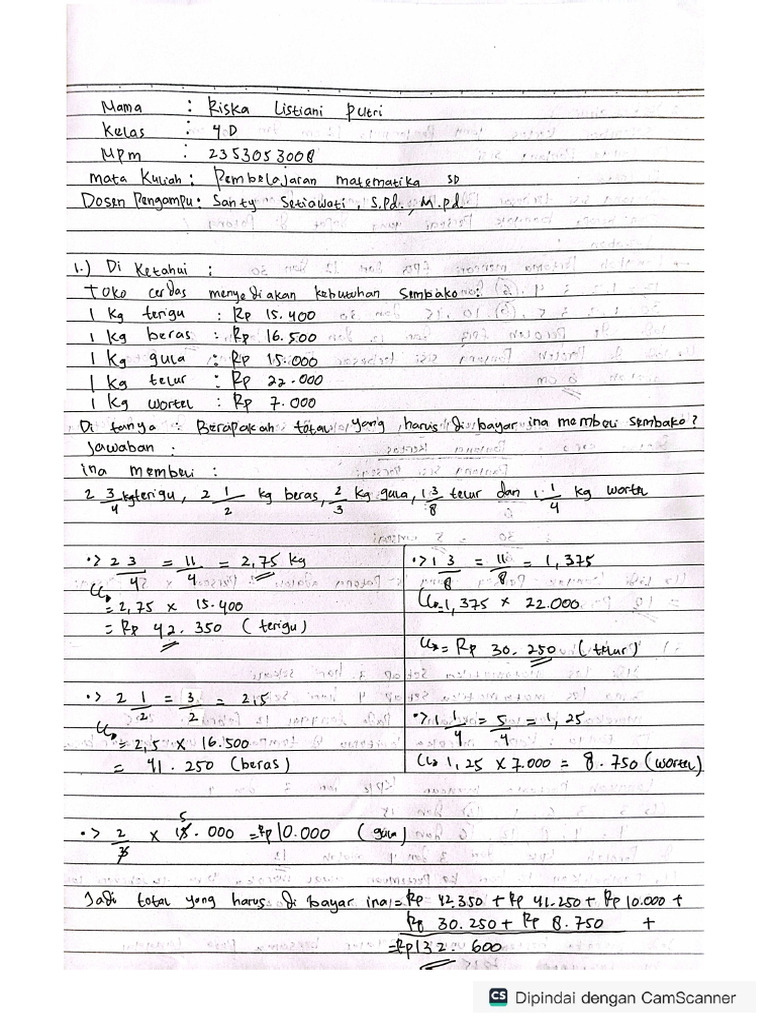 Nama : Riska Listiani Putri
Kelas : 4D
Npm : 2353053008
Mata Kuliah : Pembelajaran matematika SD
Dosen Pengampu : Santy Setiawati, S.Pd., M.pd.
1.) Di Ketahui :
Toko cerdas menyediakan kebutuhan Sembako :
1 Kg terigu : Rp 15.400
1 Kg beras : Rp 16.500
1 Kg gula : Rp 15.000
1 Kg telur : Rp 22.000
1 Kg wortel : Rp 7.000
Di tanya : Berapakah total yang harus di bayar ina membeli sembako?
Jawaban :
ina membeli :
2 3/4 kg terigu, 2 1/2 kg beras, 2/3 kg gula, 1 3/8 telur dan 1 1/4 kg wortel
•> 2 3/4 = 11/4 = 2,75 kg
↳ = 2,75 x 15.400
= Rp 42.350 (terigu)
•> 2 1/2 = 3/2 = 2,5
↳ = 2,5 x 16.500
= 41.250 (beras)
•> 2/3 x 15.000 = Rp 10.000 (gula)
5
•> 1 3/8 = 11/8 = 1,375
↳ = 1,375 x 22.000
↳ = Rp 30.250 (telur)
•> 1 1/4 = 5/4 = 1,25
↳ 1,25 x 7.000 = 8.750 (wortel)
Jadi total yang harus di bayar ina = Rp 42.350 + Rp 41.250 + Rp 10.000 +
Rp 30.250 + Rp 8.750 +
= Rp 132.600
CS Dipindai dengan CamScanner